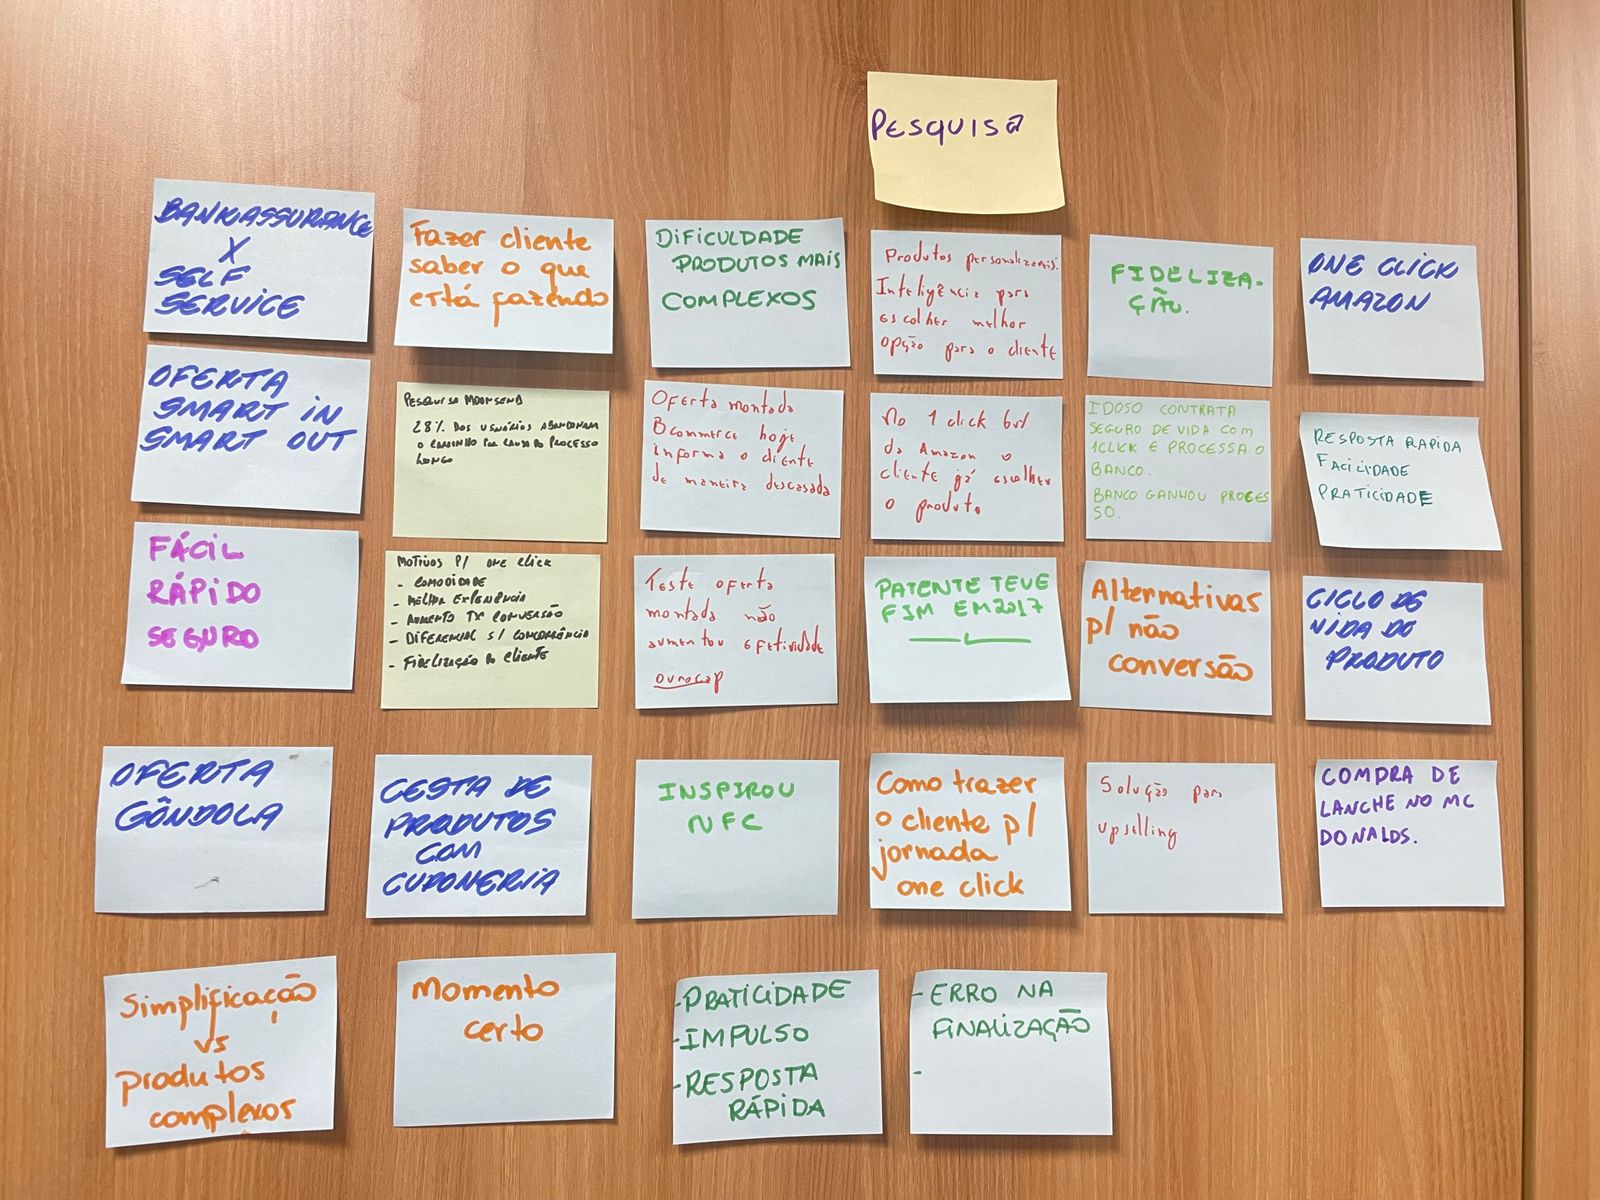 PESQUISA
BANKASSURANCE
X
SELF
SERVICE
Fazer cliente
saber o que
está fazendo
DIFICULDADE
PRODUTOS MAIS
COMPLEXOS
Produtos personalizados.
Inteligência para
escolher melhor
opção para o cliente
FIDELIZA-
ÇÃO.
ONE CLICK
AMAZON
OFERTA
SMART IN
SMART OUT
PESQUISA MOONSEND
28% DOS USUÁRIOS ABANDONAM
O CARRINHO POR CAUSA DO PROCESSO
LONGO
Oferta montada
Bcommerce hoje
informa o cliente
de maneira descasada
No 1 click buy
da Amazon o
cliente já escolheu
o produto
IDOSO CONTRATA
SEGURO DE VIDA COM
1CLICK E PROCESSA O
BANCO.
BANCO GANHOU PROCES
SO.
RESPOSTA RAPIDA
FACILIDADE
PRATICIDADE
FÁCIL
RÁPIDO
SEGURO
MOTIVOS P/ ONE CLICK
- COMODIDADE
- MELHOR EXPERIÊNCIA
- AUMENTO TX CONVERSÃO
- DIFERENCIAL S/ CONCORRÊNCIA
- FIDELIZAÇÃO DO CLIENTE
Teste oferta
montada não
aumentou efetividade
ourocap
PATENTE TEVE
FIM EM 2017
Alternativas
p/ não
conversão
CICLO DE
VIDA DO
PRODUTO
OFERTA
GÔNDOLA
CESTA DE
PRODUTOS
COM
CUPONERIA
INSPIROU
NFC
Como trazer
o cliente p/
jornada
one click
Solução para
upselling
COMPRA DE
LANCHE NO MC
DONALDS.
Simplificação
vs
produtos
complexos
Momento
certo
- PRATICIDADE
- IMPULSO
- RESPOSTA
RÁPIDA
- ERRO NA
FINALIZAÇÃO
-